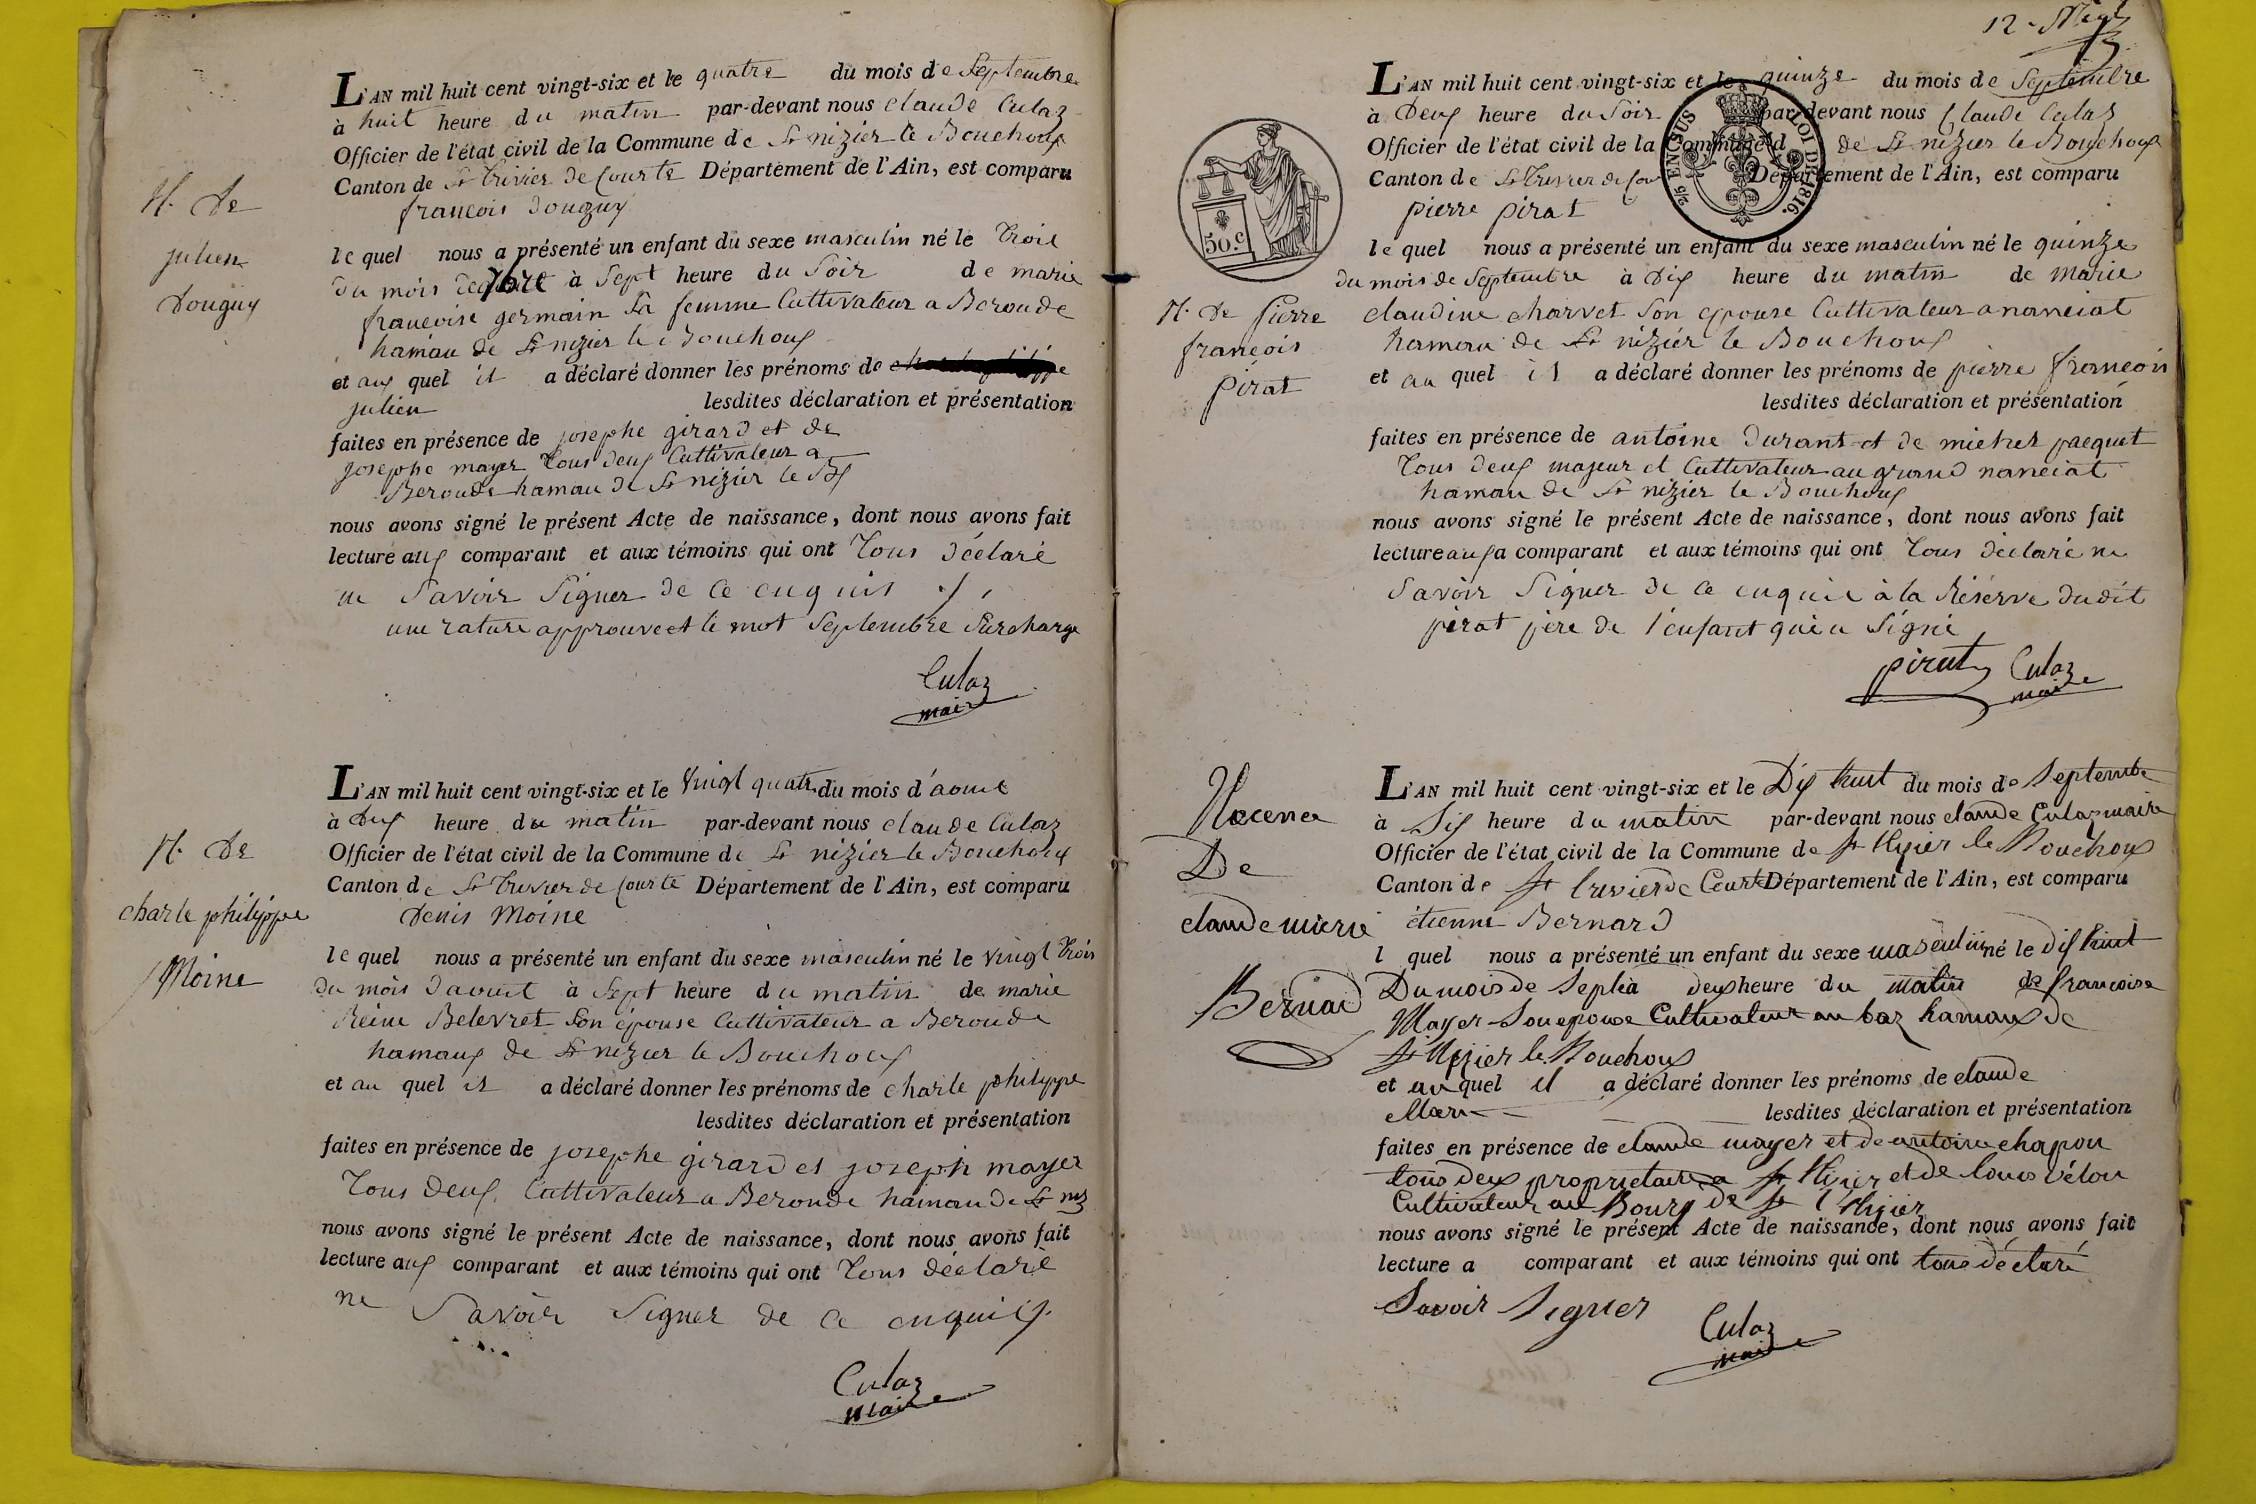 N. De
julien
Douguy
L'AN mil huit cent vingt-six et le quatre du mois de Septembre
à huit heure du matin par-devant nous claude Culaz
Officier de l'état civil de la Commune de St nizier le Bouchoux
Canton de St trivier de Courte Département de l'Ain, est comparu
francois douguy
le quel nous a présenté un enfant du sexe masculin né le trois
du mois 7bre à Sept heure du Soir de marie
francoise germain Sa femme Cultivateur a Beroude
hamau de St nizier le Bouchoux
et aux quel il a déclaré donner les prénoms de
julien lesdites déclaration et présentation
faites en présence de josephe girard et de
josephe mayer tous deux Cultivateur a
Beroude hamau de St nizier le Bx
nous avons signé le présent Acte de naissance, dont nous avons fait
lecture aux comparant et aux témoins qui ont tous déclaré
ne Savoir Signer de ce enquis
une rature approuve et le mot Septembre Surcharge
Culaz
maire
N. De
charle philippe
Moine
L'AN mil huit cent vingt-six et le vingt quatre du mois d'aout
à Dix heure du matin par-devant nous claude Culaz
Officier de l'état civil de la Commune de St nizier le Bouchoux
Canton de St trivier de Courte Département de l'Ain, est comparu
Denis Moine
le quel nous a présenté un enfant du sexe masculin né le vingt trois
du mois d'aout à Sept heure du matin de marie
Reine Belevret Son épouse Cultivateur a Beroude
hamaux de St nizier le Bouchoux
et au quel il a déclaré donner les prénoms de charle philippe
lesdites déclaration et présentation
faites en présence de josephe girard et joseph mayer
tous deux Cultivateur a Beroude hamau de St niz
nous avons signé le présent Acte de naissance, dont nous avons fait
lecture aux comparant et aux témoins qui ont tous déclaré
ne Savoir Signer de ce enquis
Culaz
Maire
12
50.c
2/5 EN SUS
LOI DE 1816.
N. De Pierre
francois
pirat
L'AN mil huit cent vingt-six et le quinze du mois de Septembre
à Deux heure du Soir par-devant nous Claude Culaz
Officier de l'état civil de la Commune d de St nizier le Bouchoux
Canton de St trivier de Cou Département de l'Ain, est comparu
pierre pirat
le quel nous a présenté un enfant du sexe masculin né le quinze
du mois de Septembre à Dix heure du matin de marie
claudine charvet Son épouse Cultivateur a nanciat
hameau de St nizier le Bouchoux
et au quel il a déclaré donner les prénoms de pierre francois
lesdites déclaration et présentation
faites en présence de antoine durant et de michel pacquet
tous deux majeur et Cultivateur au grand nanciat
hamau de St nizier le Bouchoux
nous avons signé le présent Acte de naissance, dont nous avons fait
lecture aux a comparant et aux témoins qui ont tous déclaré ne
Savoir Signer de ce enquis à la Réserve dudit
pirat père de l'enfant qui a Signé
pirat Culaz
maire
De
claude marie
Bernard
L'AN mil huit cent vingt-six et le Dix huit du mois de Septembre
à Six heure du matin par-devant nous claude Culaz maire
Officier de l'état civil de la Commune de St Nizier le Bouchoux
Canton de St trivier de Courte Département de l'Ain, est comparu
étienne Bernard
l quel nous a présenté un enfant du sexe masculin né le dix huit
Du mois de Septe à deux heure du matin de francoise
Mayer Son epouse Cultivateur au baz hamaux de
St Nizier le Bouchoux
et au quel il a déclaré donner les prénoms de claude
Marie lesdites déclaration et présentation
faites en présence de claude mayer et de antoine chapon
tous deux proprietaire a St Nizier et de louis vélon
Cultivateur au Bourg de St Nizier
nous avons signé le présent Acte de naissance, dont nous avons fait
lecture a comparant et aux témoins qui ont tous déclaré
Savoir Signer
Culaz
maire